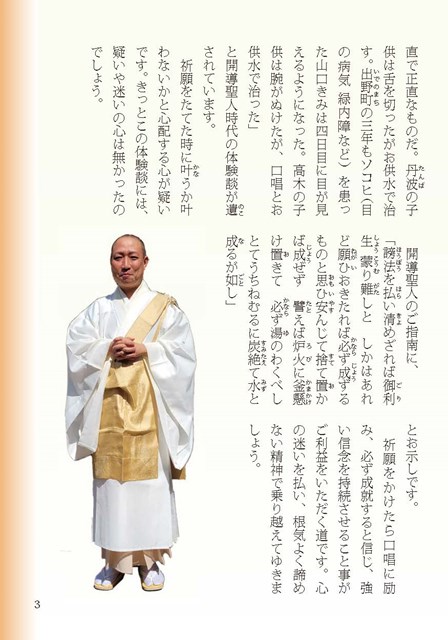 直で正直なものだ。丹波の子
供は舌を切ったがお供水で治
す。出野町の三年もソコヒ(目
の病気 緑内障など)を患っ
た山口きみは四日目に目が見
えるようになった。高木の子
供は腕がぬけたが、口唱とお
供水で治った」
と開導聖人時代の体験談が遺
されています。
祈願をたてた時に叶うか叶
わないかと心配する心が疑い
です。きっとこの体験談には、
疑いや迷いの心は無かったの
でしょう。
開導聖人のご指南に、
「謗法を払い清めざれば御利
生、蒙り難しと しかはあれ
ど願ひおきたれば必ず成ずる
ものと思ひ安んじて捨て置か
ば成ぜず 譬えば炉火に釜懸
け置きて 必ず湯のわくべし
とてうちねむるに炭絶て水と
成るが如し」
とお示しです。
祈願をかけたら口唱に励
み、必ず成就すると信じ、強
い信念を持続させること事が
ご利益をいただく道です。心
の迷いを払い、根気よく諦め
ない精神で乗り越えてゆきま
しょう。
3